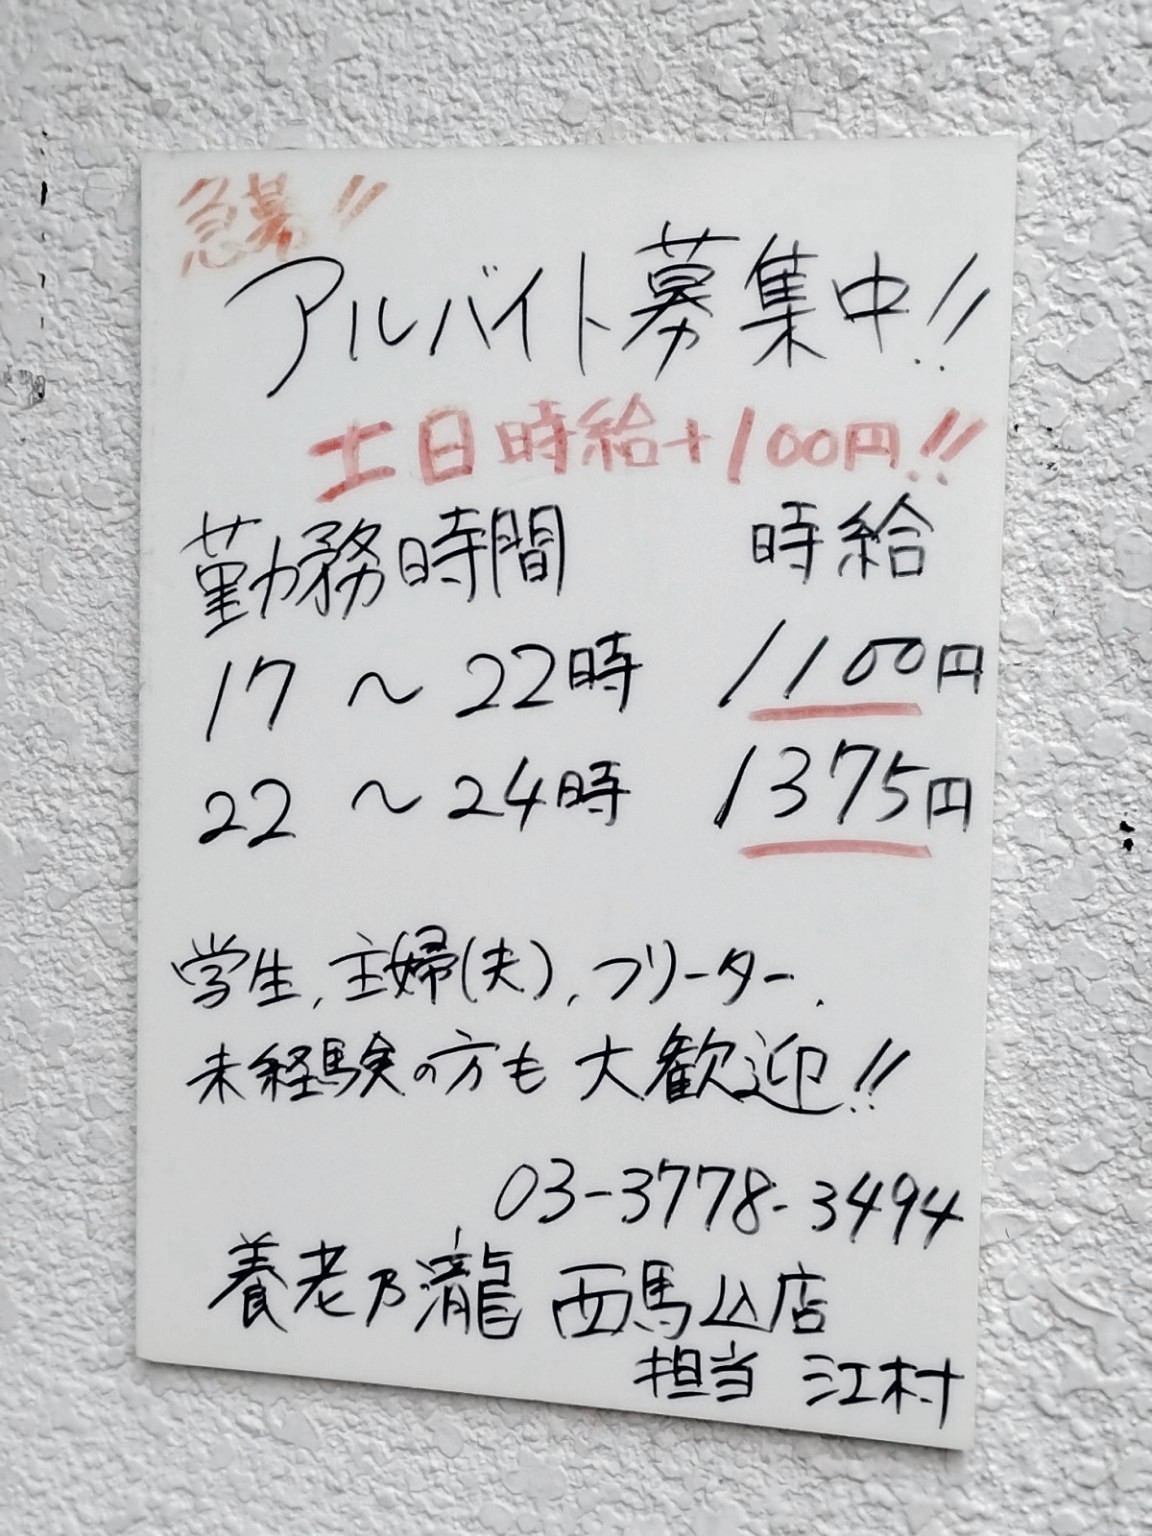 急募!!
アルバイト募集中!!
土日時給+100円!!
勤務時間 時給
17 〜 22時 1100円
22 〜 24時 1375円
学生、主婦(夫)、フリーター、
未経験の方も大歓迎!!
03-3778-3494
養老乃瀧 西馬込店
担当 江村